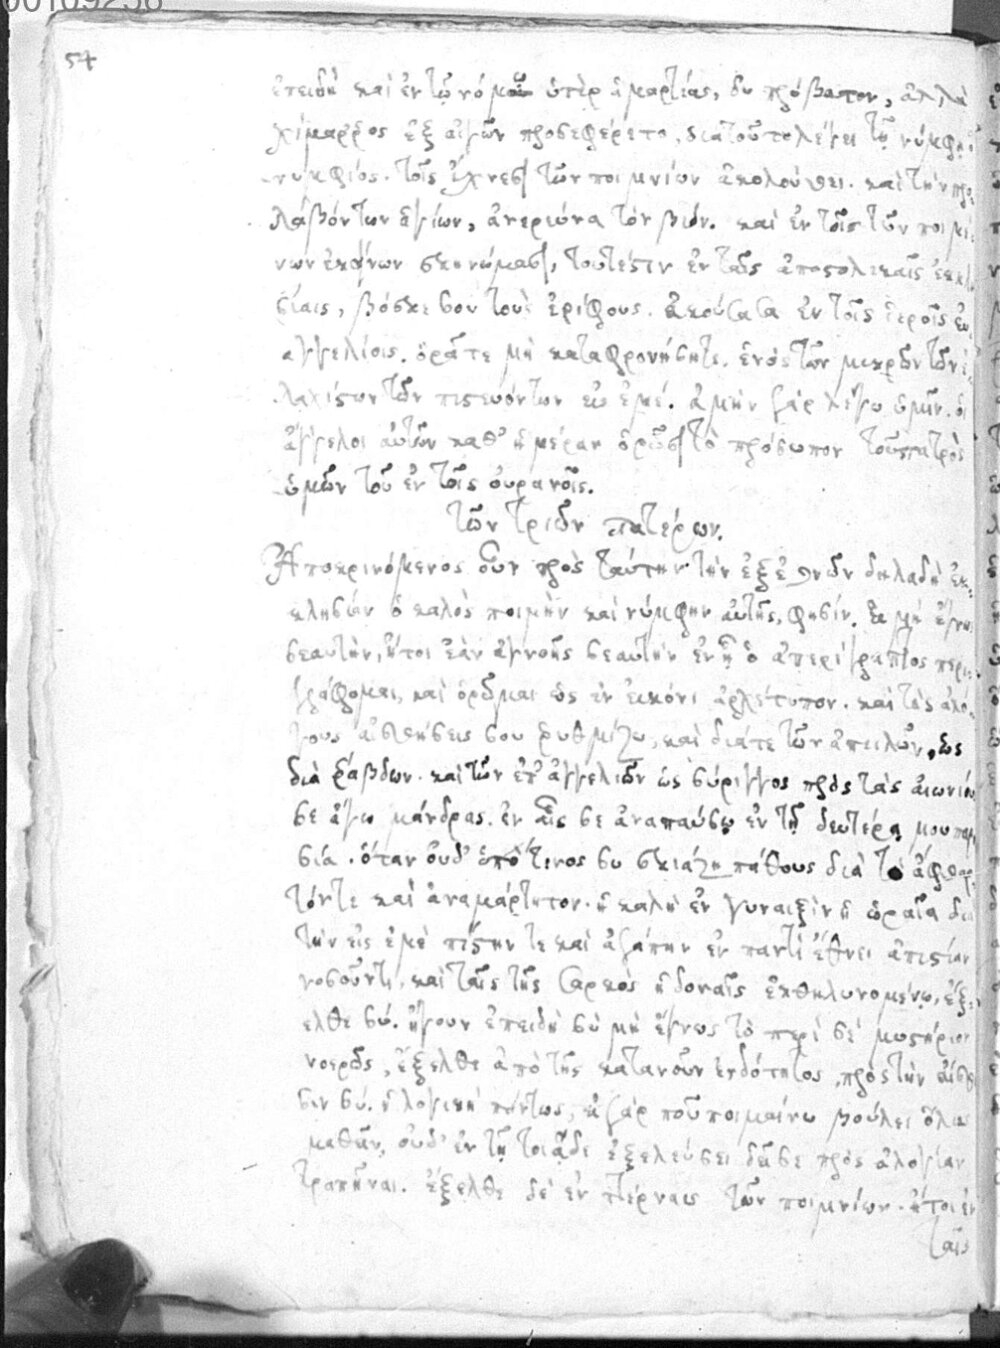 00109256
54
ἐπειδὴ καὶ ἐν τῷ νόμῳ ὑπὲρ ἁμαρτίας, οὐ πρόβατον, ἀλλὰ
χίμαρρος ἐξ αἰγῶν προσεφέρετο, διατοῦτο λέγει τῇ νύμφῃ ὁ
νυμφίος. τοῖς ἴχνεσι τῶν ποιμνίων ἀκολούθει. καὶ τὴν προ-
λαβόντων ἁγίων, ἀνερεύνα τὸν βίον. καὶ ἐν τοῖς τῶν ποιμέ-
νων ἐκείνων σκηνώμασι, τουτέστιν ἐν ταῖς ἀποστολικαῖς ἐκκλη-
σίαις, βόσκε σου τοὺς ἐρίφους. ἀκούσασα ἐν τοῖς ἱεροῖς εὐ-
αγγελίοις. ὁρᾶτε μὴ καταφρονήσητε. ἑνὸς τῶν μικρῶν τῶν ἐ-
λαχίστων τῶν πιστευόντων εἰς ἐμέ. ἀμὴν γὰρ λέγω ὑμῖν. οἱ
ἄγγελοι αὐτῶν καθ' ἡμέραν ὁρῶσι τὸ πρόσωπον τοῦ πατρὸς
ὑμῶν τοῦ ἐν τοῖς οὐρανοῖς.
τῶν τριῶν πατέρων.
Ἀποκρινόμενος οὖν πρὸς ταύτην τὴν ἐξ ἐθνῶν δηλαδὴ ἐκ-
κλησίαν ὁ καλὸς ποιμὴν καὶ νύμφην αὐτῆς, φησίν. ἐὰ μὴ γνῷς
σεαυτὴν, ἤτοι ἐὰν ἀγνοῇς σεαυτὴν ἐν ᾗ ὁ ἀπερίγραπτος περι-
γράφομαι, καὶ ὁρῶμαι ὡς ἐν εἰκόνι ἀρχέτυπον. καὶ τὰς ἀλό-
γους αἰσθήσεις σου ῥυθμίζω, καὶ διάτε τῶν ἀπειλῶν, ὡς
διὰ ῥάβδων. καὶ τῶν ἐπαγγελιῶν ὡς σύριγγος πρὸς τὰς αἰωνίους
σε ἄγω μάνδρας. ἐν αἷς σε ἀναπαύσω ἐν τῇ δευτέρᾳ μου παρου-
σίᾳ. ὅταν οὐδ' ὑπό τινος συσκιάζῃ πάθους διὰ τὸ ἄφθαρ-
τόν τε καὶ ἀναμάρτητον. ἡ καλὴ ἐν γυναιξὶν ἡ ὡραῖα διὰ
τὴν εἰς ἐμὲ πίστην τε καὶ ἀγάπην ἐν παντὶ ἔθνει ἀπιστίαν
νοσοῦντι, καὶ ταῖς τῆς σαρκὸς ἡδοναῖς ἐκθηλυνομένῳ, ἔξ-
ελθε σύ. ἤγουν ἐπειδὴ σὺ μὴ ἔγνως τὸ περὶ σὲ μυστήριον
νοερῶς, ἔξελθε ἀπὸ τῆς κατανοῦν ἐνδότητος, πρὸς τὴν αἴσθη-
σιν σύ. ἡ λογικὴ πάντως, εἰ γὰρ ποῦ ποιμαίνω βούλει ὅλως
μαθεῖν, οὐδ' ἐν τῇ τοιᾷδε ἐξελεύσει δεῖ σε πρὸς ἀλογίαν
τραπῆναι. ἔξελθε δὲ ἐν πτέρναις τῶν ποιμνίων. ἤτοι ἐν
ταῖς